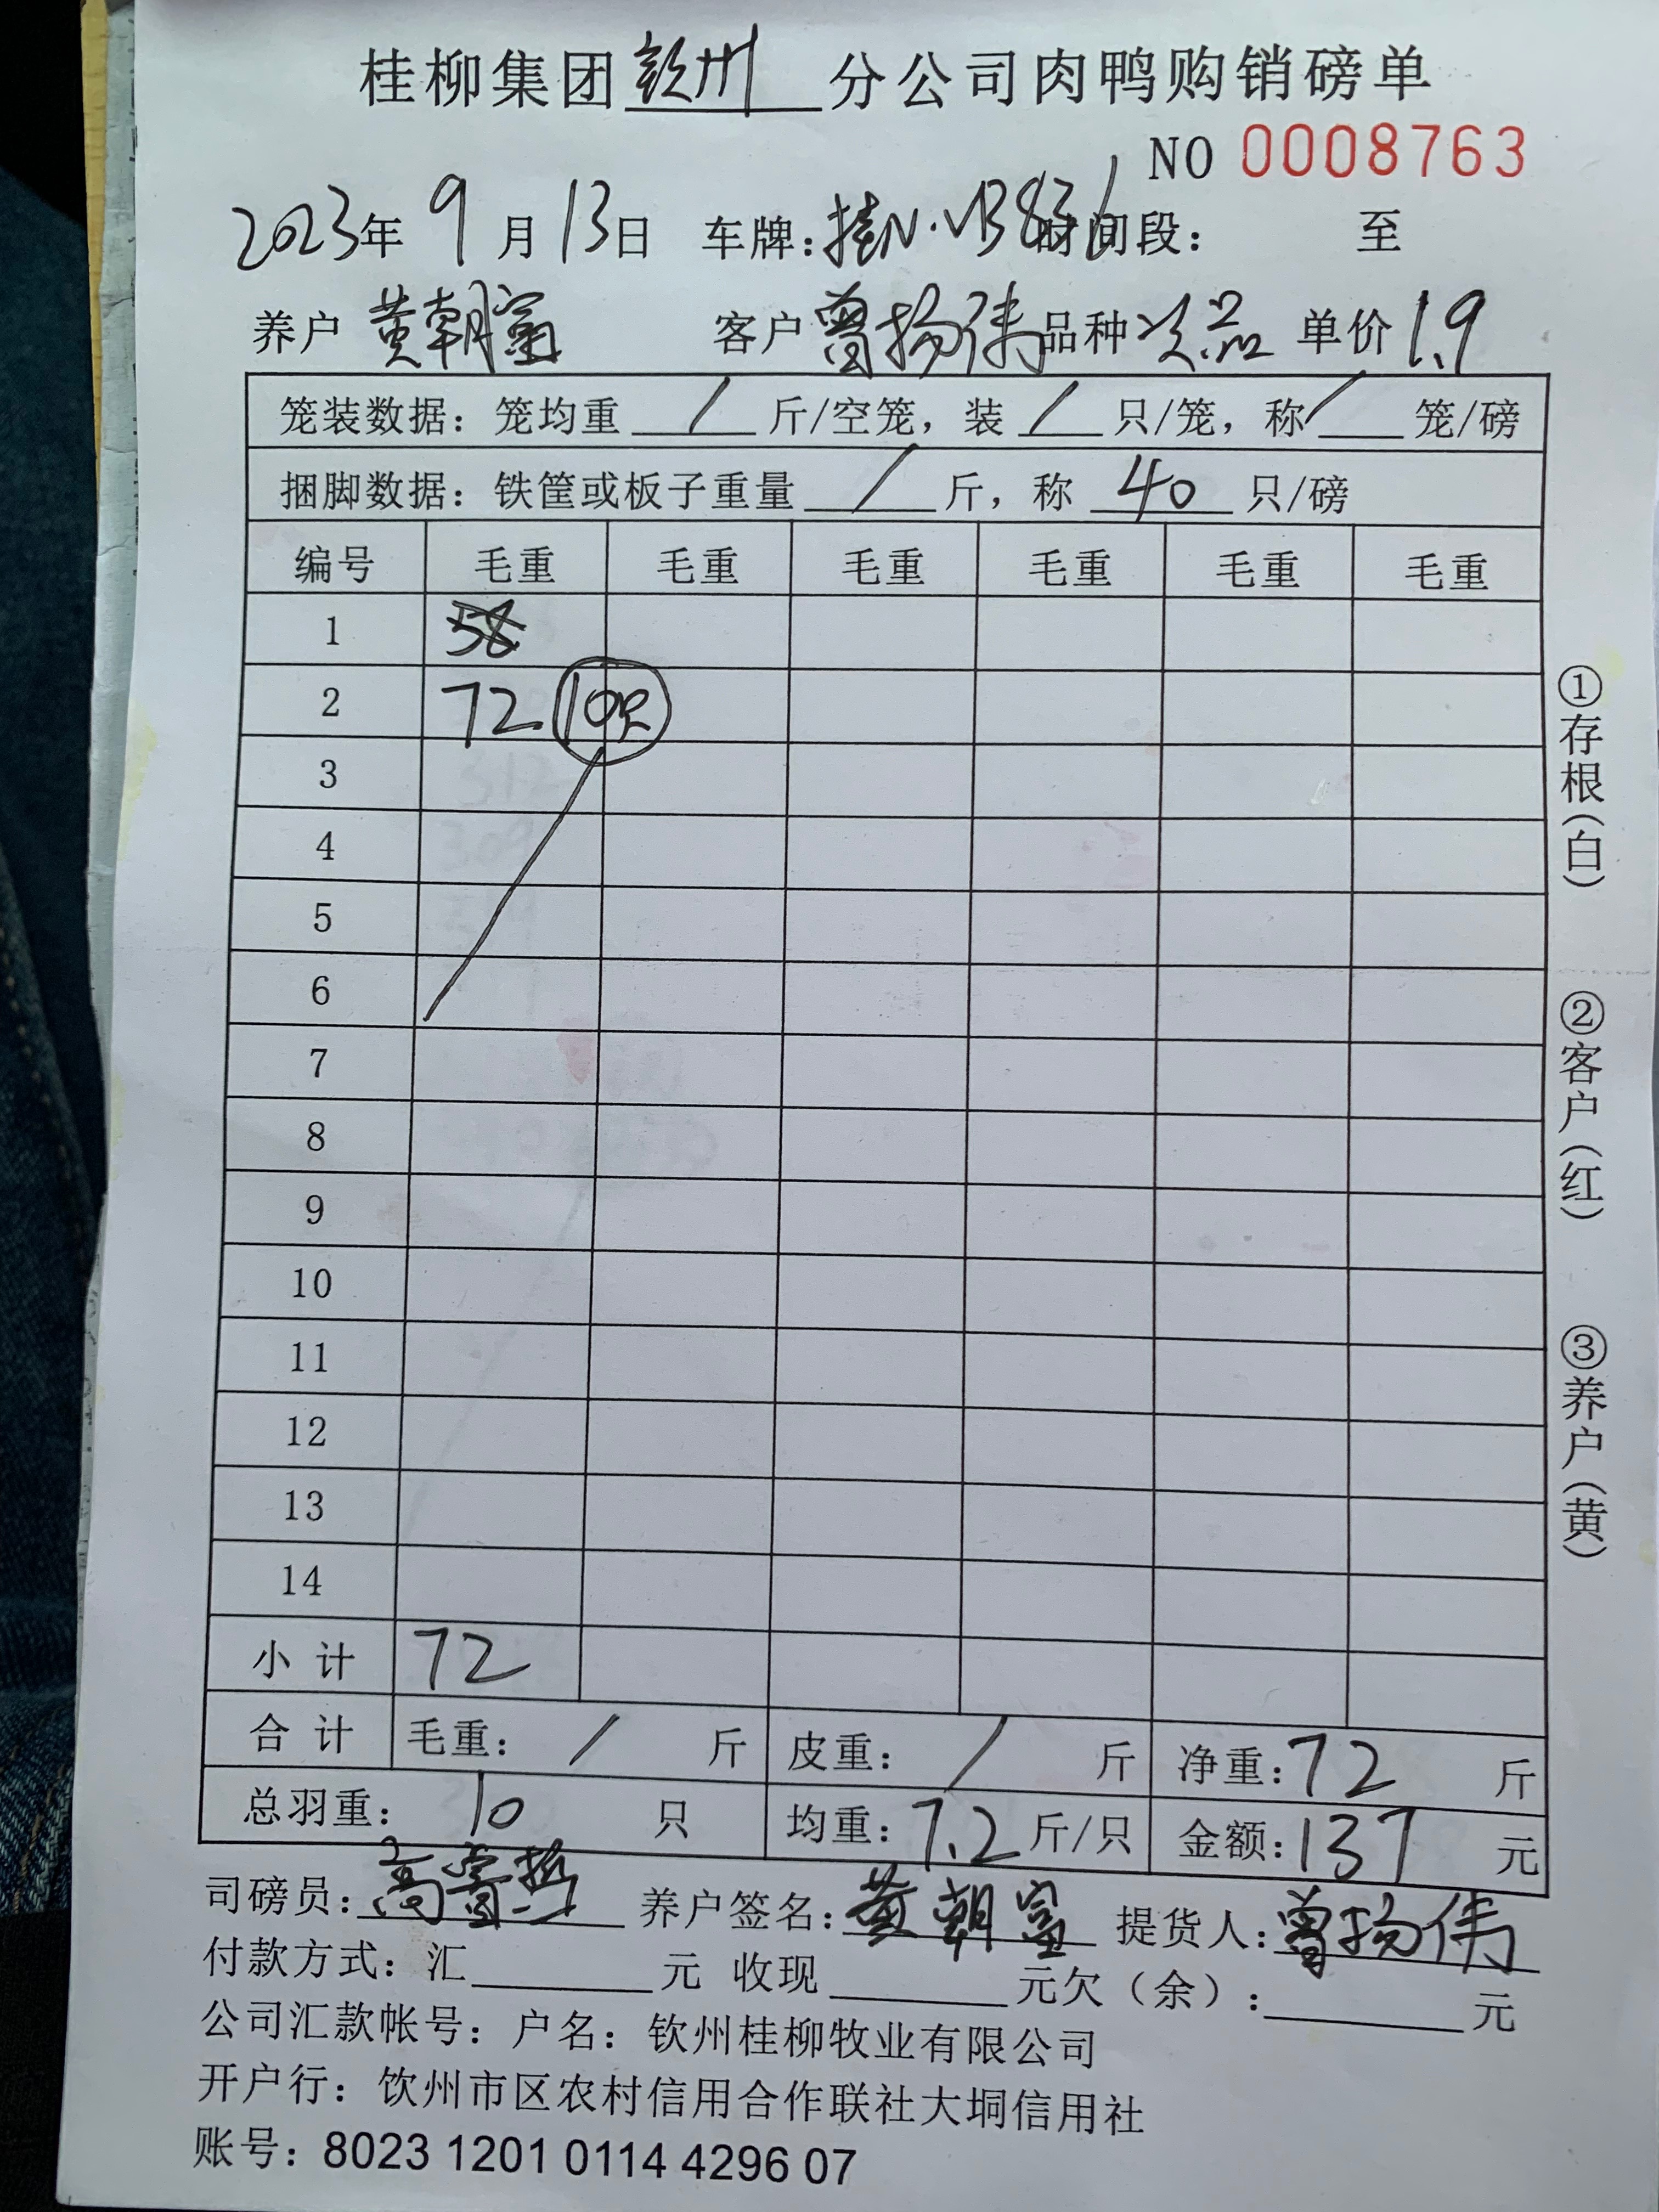 桂柳集团钦州分公司肉鸭购销磅单
NO 0008763
2023年 9月 13日 车牌:桂N·VB836 时间段: 至
养户 黄朝富 客户 曾扬伟 品种 次品 单价 1.9
笼装数据: 笼均重 / 斤/空笼, 装 / 只/笼, 称 / 笼/磅
捆脚数据: 铁筐或板子重量 / 斤, 称 40 只/磅
编号 毛重 毛重 毛重 毛重 毛重 毛重
1
2 72 10只
3
4
5
6
7
8
9
10
11
12
13
14
小计 72
合计 毛重: / 斤 皮重: / 斤 净重: 72 斤
总羽重: 10 只 均重: 7.2 斤/只 金额: 137 元
司磅员: 高 养户签名: 黄朝富 提货人: 曾扬伟
付款方式: 汇 元 收现 元欠(余): 元
公司汇款帐号: 户名: 钦州桂柳牧业有限公司
开户行: 钦州市区农村信用合作联社大垌信用社
账号: 8023 1201 0114 4296 07
①存根(白)
②客户(红)
③养户(黄)